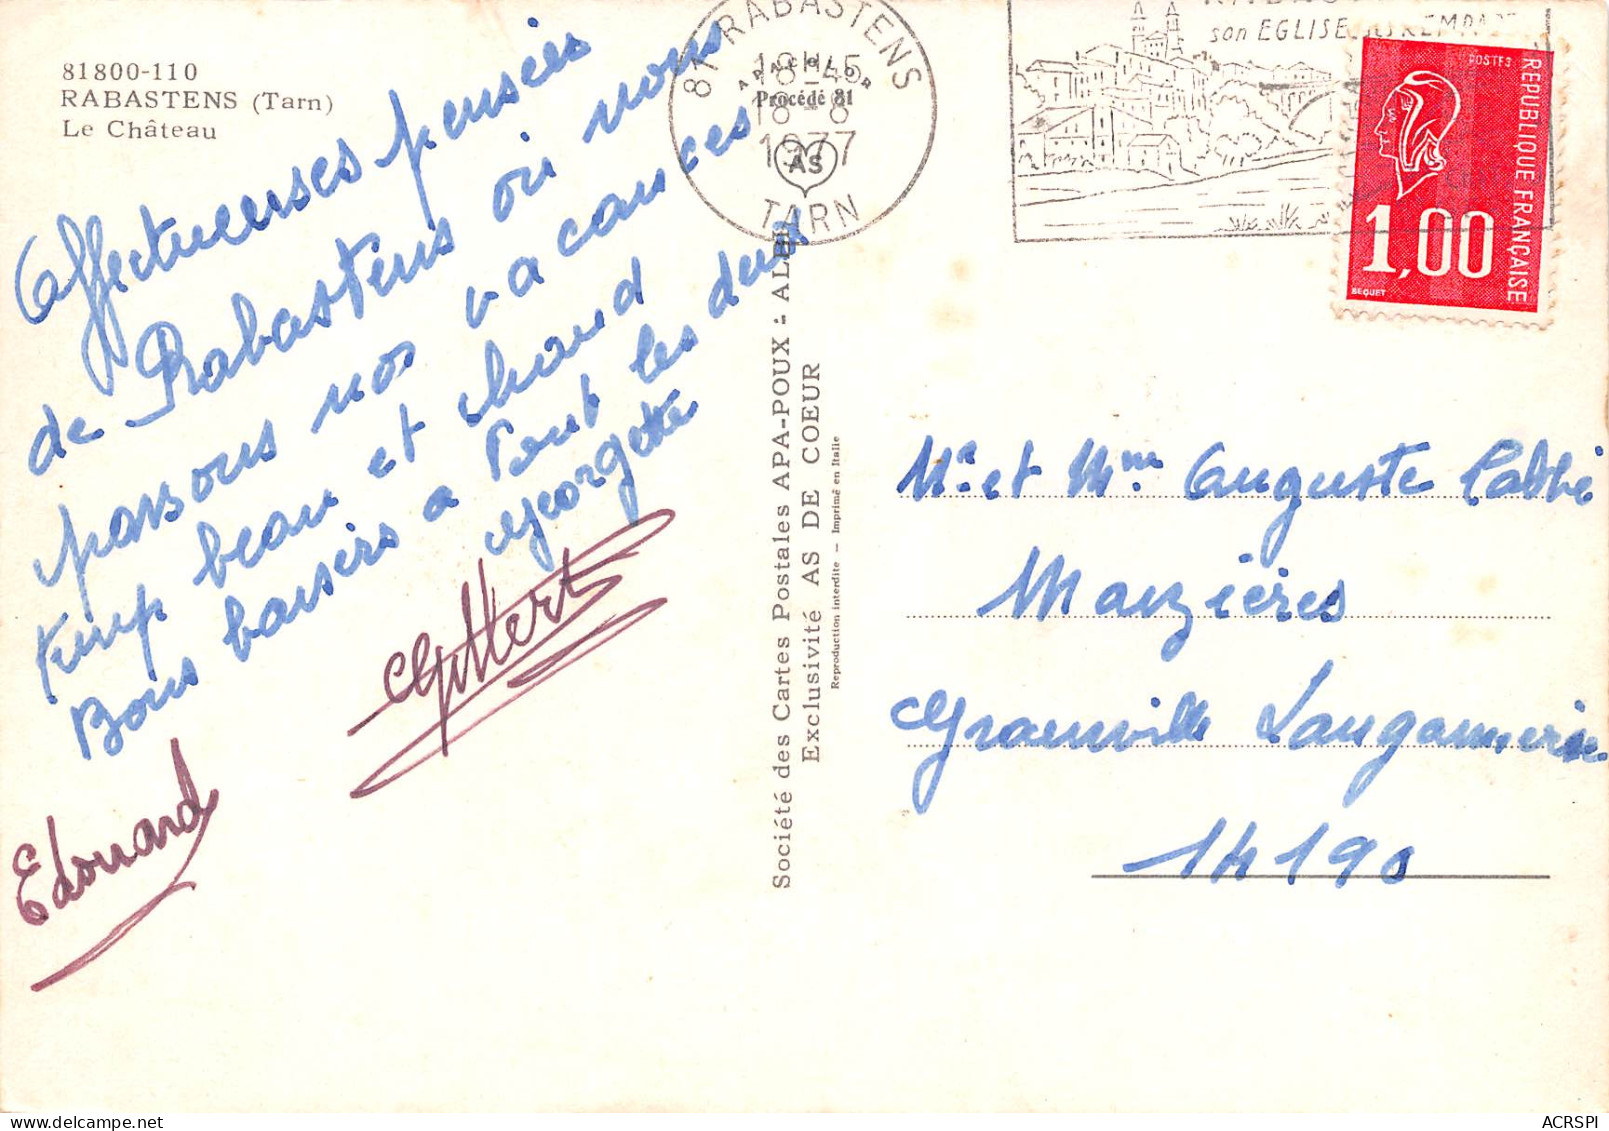 81800-110
RABASTENS (Tarn)
Le Château
Affectueuses pensées
de Rabastens où nous
passons nos vacances
temps beau et chaud
Bons baisers à tout les deux
Georgette
Gilbert
Edouard
81 RABASTENS
18H45
18-8
1977
TARN
APACOLOR
Procédé 81
AS
son EGLISE
REMPARTS
POSTES
REPUBLIQUE FRANÇAISE
1,00
BEQUET
Société des Cartes Postales APA-POUX - ALBI
Exclusivité AS DE COEUR
Reproduction interdite - Imprimé en Italie
Mr et Mme Auguste Labbé
Maizières
Grainville Langannerie
14190
ACRSPI